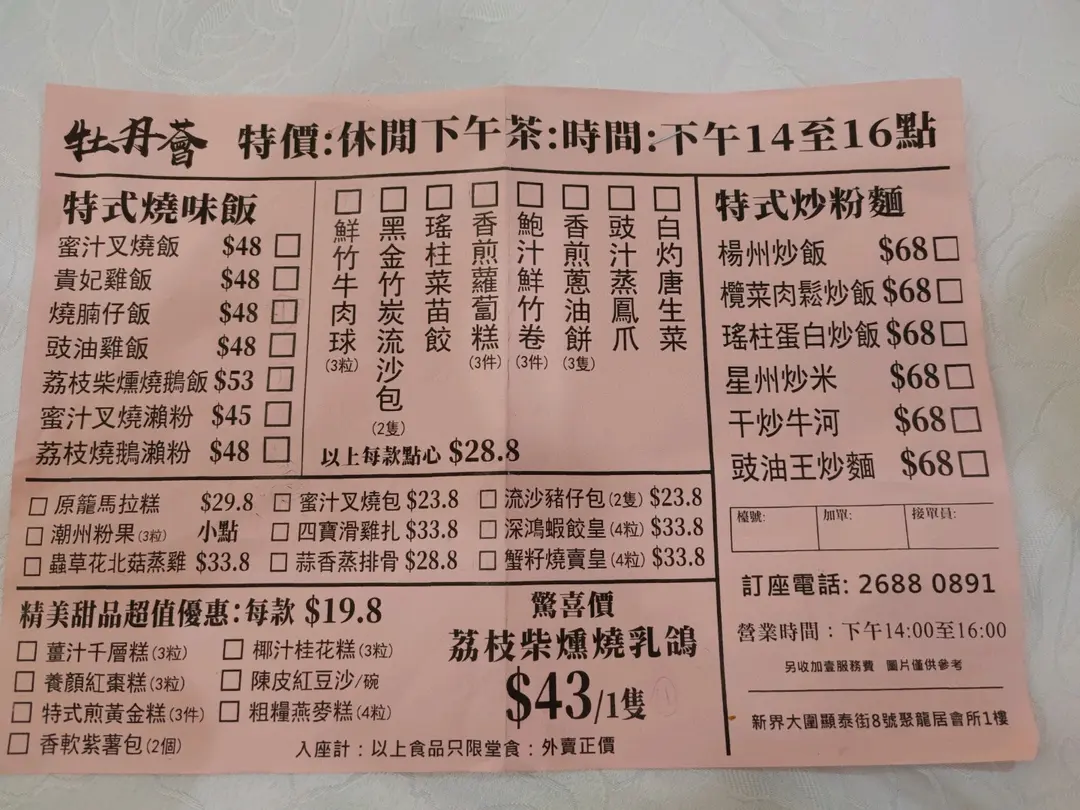 牡丹薈 特價:休閒下午茶:時間:下午14至16點
特式燒味飯
蜜汁叉燒飯 $48
貴妃雞飯 $48
燒腩仔飯 $48
豉油雞飯 $48
荔枝柴燻燒鵝飯 $53
蜜汁叉燒瀨粉 $45
荔枝燒鵝瀨粉 $48
鮮竹牛肉球(3粒)
黑金竹炭流沙包(2隻)
瑤柱菜苗餃
香煎蘿蔔糕(3件)
鮑汁鮮竹卷(3件)
香煎蔥油餅(3隻)
豉汁蒸鳳爪
白灼唐生菜
以上每款點心 $28.8
特式炒粉麵
楊州炒飯 $68
欖菜肉鬆炒飯 $68
瑤柱蛋白炒飯 $68
星州炒米 $68
干炒牛河 $68
豉油王炒麵 $68
原籠馬拉糕 $29.8 蜜汁叉燒包 $23.8 流沙豬仔包(2隻) $23.8
潮州粉果(3粒) 小點 四寶滑雞扎 $33.8 深鴻蝦餃皇(4粒) $33.8
蟲草花北菇蒸雞 $33.8 蒜香蒸排骨 $28.8 蟹籽燒賣皇(4粒) $33.8
精美甜品超值優惠:每款 $19.8
薑汁千層糕(3粒) 椰汁桂花糕(3粒)
養顏紅棗糕(3粒) 陳皮紅豆沙/碗
特式煎黃金糕(3件) 粗糧燕麥糕(4粒)
香軟紫薯包(2個)
驚喜價
荔枝柴燻燒乳鴿
$43/1隻
入座計:以上食品只限堂食:外賣正價
檯號: 加單: 接單員:
訂座電話: 2688 0891
營業時間:下午14:00至16:00
另收加壹服務費 圖片僅供參考
新界大圍顯泰街8號聚龍居會所1樓